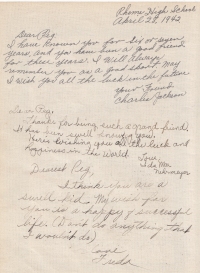 Rhome High School
April 28, 1942
Dear Peg,
I have known you for six or seven
years, and you have been a good friend
for these years. I will always
remember you as a good school
I wish you all the luck in the future
Your Friend
Charlie Jackson
Dear Peg,
Thanks for being such a grand friend,
It has been swell knowing you.
Here's wishing you all the luck and
happiness in the world
Love
Ida Mae
Dearest Peg,
I think you are a
swell kid. My wish for
you is a happy & successful
life. (Don't do anything that
I wouldn't do)
Love
Freda